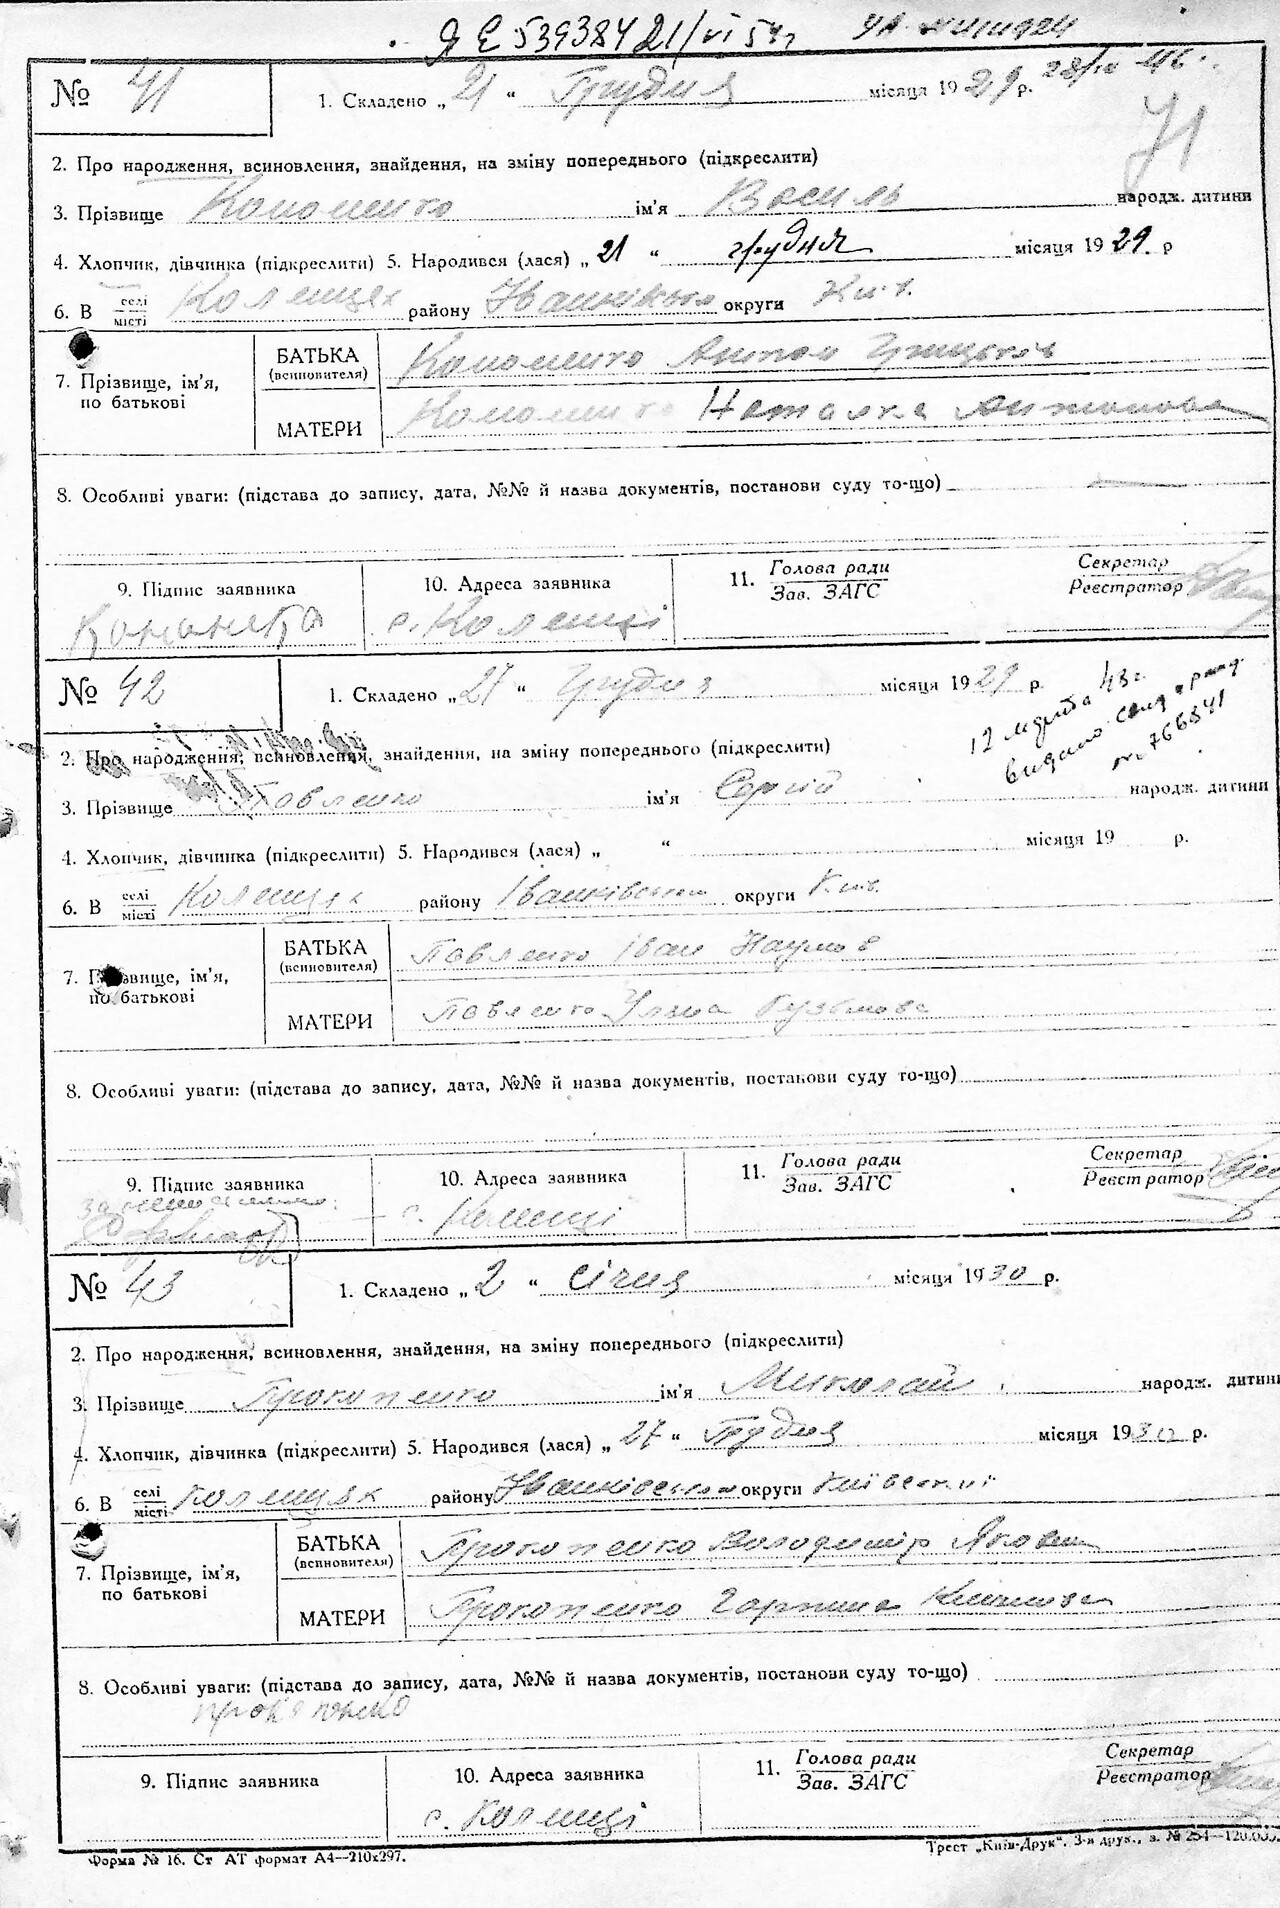 ЯЕ 539384 21/VI 54г
№ 41
1. Складено „ 21 “ Грудня місяця 1929 р.
28/IV 46
71
2. Про народження, всиновлення, знайдення, на зміну попереднього (підкреслити)
3. Прізвище Кононенко ім'я Василь народж. дитини
4. Хлопчик, дівчинка (підкреслити) 5. Народився (лася) „ 21 “ грудня місяця 1929 р
6. В селі/місті Коленцях району Іванківськ округи Київ.
7. Прізвище, ім'я, по батькові
БАТЬКА (всиновителя) Кононенко Антон Грицьків
МАТЕРИ Кононенко Наталка Антонова
8. Особливі уваги: (підстава до запису, дата, №№ й назва документів, постанови суду то-що)
9. Підпис заявника
10. Адреса заявника с. Коленці
11. Голова ради Зав. ЗАГС
Секретар Реєстратор
№ 42
1. Складено „ 27 “ Грудня місяця 1929 р.
12 43 г.
видано
№ 766541
2. Про народження, всиновлення, знайдення, на зміну попереднього (підкреслити)
3. Прізвище Павленко ім'я Сергій народж. дитини
4. Хлопчик, дівчинка (підкреслити) 5. Народився (лася) „ “ місяця 19 р.
6. В селі/місті Коленцях району Іванківськ округи Київ.
7. Прізвище, ім'я, по батькові
БАТЬКА (всиновителя) Павленко Іван Наумов
МАТЕРИ Павленко Уляна Кузьмова
8. Особливі уваги: (підстава до запису, дата, №№ й назва документів, постанови суду то-що)
9. Підпис заявника
10. Адреса заявника с. Коленці
11. Голова ради Зав. ЗАГС
Секретар Реєстратор
№ 43
1. Складено „ 2 “ Січня місяця 1930 р.
2. Про народження, всиновлення, знайдення, на зміну попереднього (підкреслити)
3. Прізвище Прокопенко ім'я Миколай народж. дитини
4. Хлопчик, дівчинка (підкреслити) 5. Народився (лася) „ 27 “ Грудня місяця 19 р.
6. В селі/місті Коленцях району Іванківськ округи Київської
7. Прізвище, ім'я, по батькові
БАТЬКА (всиновителя) Прокопенко Володимир Якович
МАТЕРИ Прокопенко Горпина
8. Особливі уваги: (підстава до запису, дата, №№ й назва документів, постанови суду то-що)
9. Підпис заявника
10. Адреса заявника с. Коленці
11. Голова ради Зав. ЗАГС
Секретар Реєстратор
Форма № 16. Ст АТ формат А4—210х297.
Трест „Київ-Друк“. 3-я друк., з. № 254—120.000.